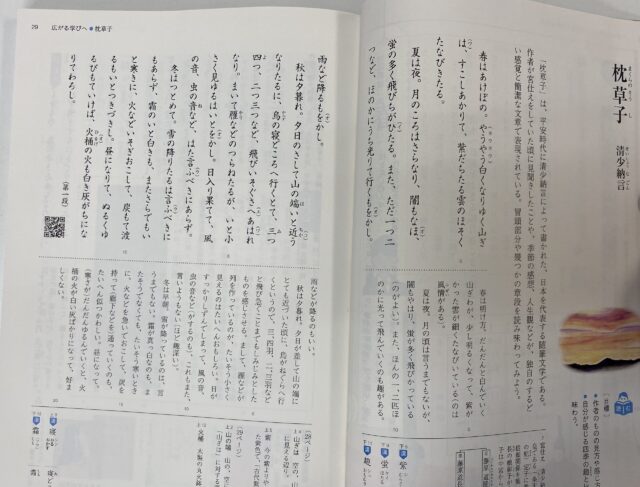 枕草子
清少納言
「枕草子」は、平安時代に清少納言によって書かれた、日本を代表する随筆文学である。
作者が宮仕えをしていた頃に見聞きしたことや、季節の感想、人生観などが、独自のするど
い感覚と簡潔な文章で表現されている。冒頭部分や幾つかの章段を読み味わってみよう。
春はあけぼの。やうやう白くなりゆく山ぎ
は、すこしあかりて、紫だちたる雲のほそく
たなびきたる。
夏は夜。月のころはさらなり、闇もなほ、
蛍の多く飛びちがひたる。また、ただ一つ二
つなど、ほのかにうち光りて行くもをかし。
春は明け方。だんだんと白んでいく
山ぎわが、少し明るくなって、紫が
かった雲が細くたなびいているのは
風情がある。
夏は夜。月の頃は言うまでもないが、
闇もやはり、蛍が多く飛びかっている
のがよい。また、ほんの一、二匹ほ
のかに光って飛んでいくのも趣がある。
目標
作者のものの見方や感じ
自分が感じる四季の趣と
味わう。
29
広がる学びへ
枕草子
雨など降るもをかし。
秋は夕暮れ。夕日のさして山の端いと近う
なりたるに、烏の寝どころへ行くとて、三つ
四つ、二つ三つなど、飛びいそぐさへあはれ
なり。まいて雁などのつらねたるが、いと小
さく見ゆるはいとをかし。日入り果てて、風
の音、虫の音など、はた言ふべきにあらず。
冬はつとめて。雪の降りたるは言ふべきに
もあらず、霜のいと白きも、またさらでもい
と寒きに、火などいそぎおこして、炭もて渡
るもいとつきづきし。昼になりて、ぬるくゆ
るびもていけば、火桶の火も白き灰がちにな
りてわろし。
（第一段）
雨などが降るのもいい。
秋は夕暮れ。夕日が差して山の端に
とても近づいた頃に、烏がねぐらへ行
くというので、三、四羽、二、三羽など
と飛び急ぐことまでもしみじみとした
ものを感じさせる。まして、雁などが
列を作っているのが、たいそう小さく
見えるのはたいへんおもしろい。日が
すっかりしずんでしまって、風の音、
虫の音など（がするのも）、これもまた、
言いようもない（ほど趣深い）。
冬は早朝。雪が降っているのは、言
うまでもない。霜が真っ白なのも、ま
たそうでなくても、たいそう寒いとき
に、火などを急いでおこして、炭を
持って（廊下などを）通っていくのも、
たいへん似つかわしい。昼になって、
（寒さが）だんだんゆるんでいくと、火
桶の火が白い灰ばかりになって、好ま
しくない。